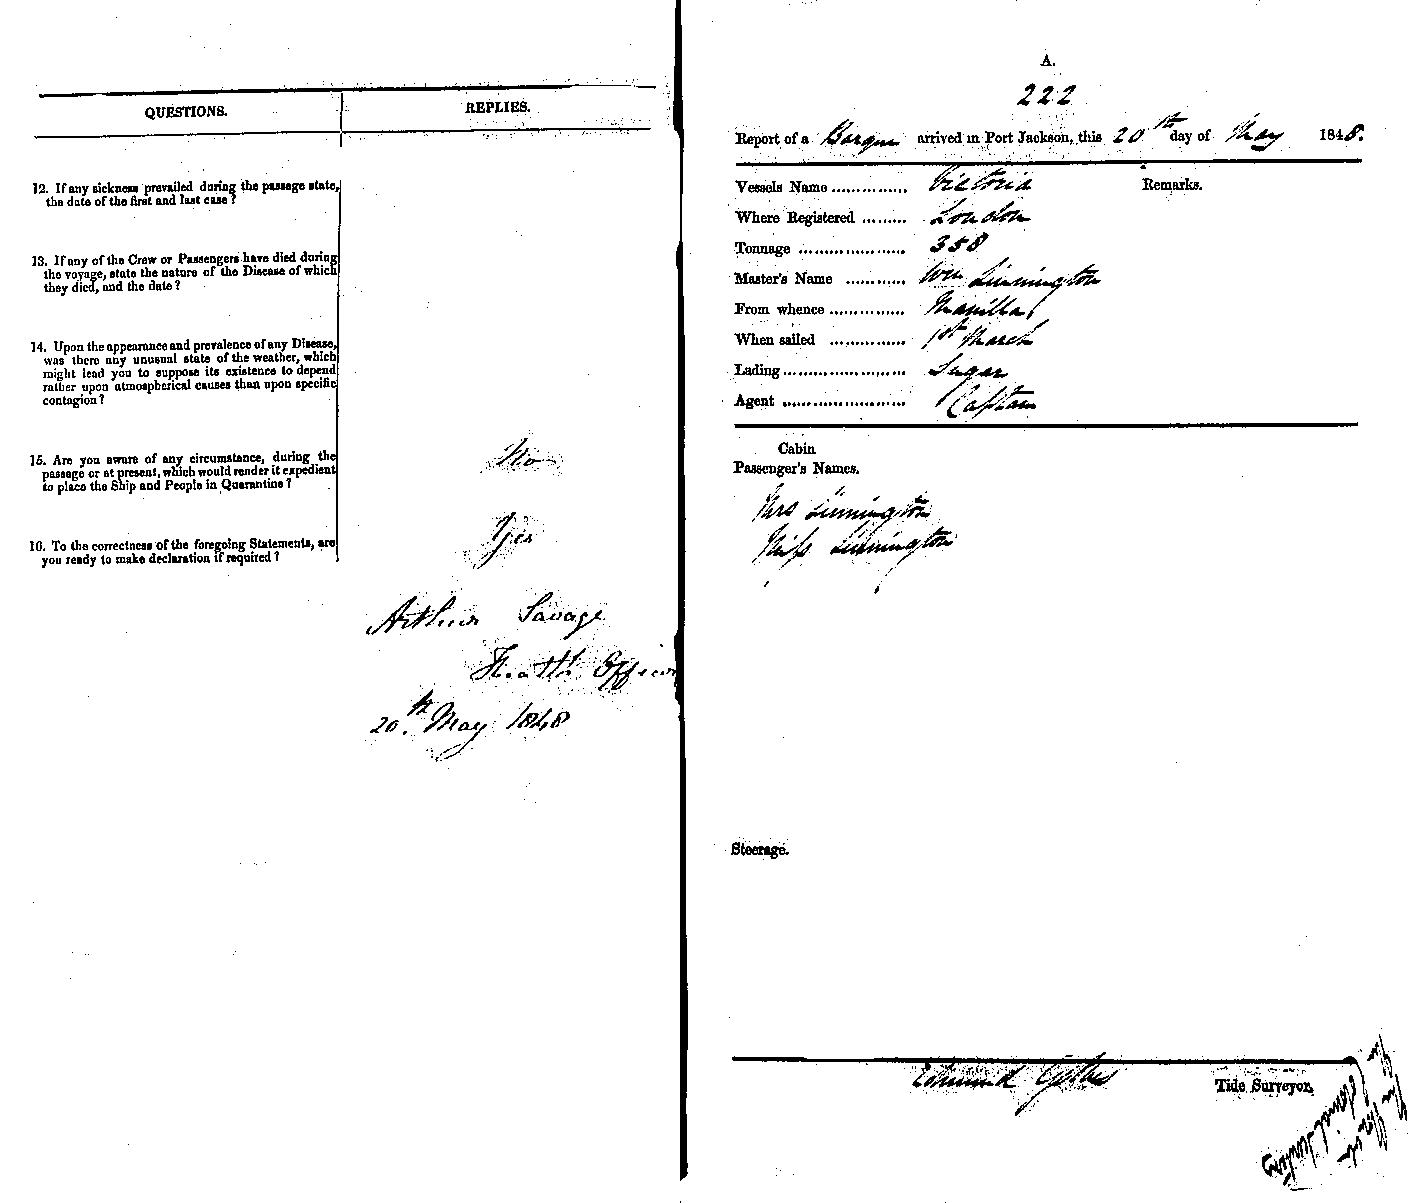 QUESTIONS. REPLIES.
12. If any sickness prevailed during the passage state,
the date of the first and last case?
13. If any of the Crew or Passengers have died during
the voyage, state the nature of the Disease of which
they died, and the date?
14. Upon the appearance and prevalence of any Disease,
was there any unusual state of the weather, which
might lead you to suppose its existence to depend
rather upon atmospherical causes than upon specific
contagion?
15. Are you aware of any circumstance, during the
passage or at present, which would render it expedient
to place the Ship and People in Quarantine?
No
16. To the correctness of the foregoing Statements, are
you ready to make declaration if required?
Yes
Arthur Savage
Health Officer
20th May 1848
A.
222
Report of a Barque arrived in Port Jackson, this 20th day of May 1848.
Vessels Name ............... Victoria Remarks.
Where Registered ......... London
Tonnage ..................... 358
Master's Name ............ Wm Linnington
From whence ............... Manilla
When sailed ............... 1st March
Lading ....................... Sugar
Agent ........................ Captain
Cabin
Passenger's Names.
Mrs Linnington
Miss Linnington
Steerage.
Edmund Tide Surveyor,